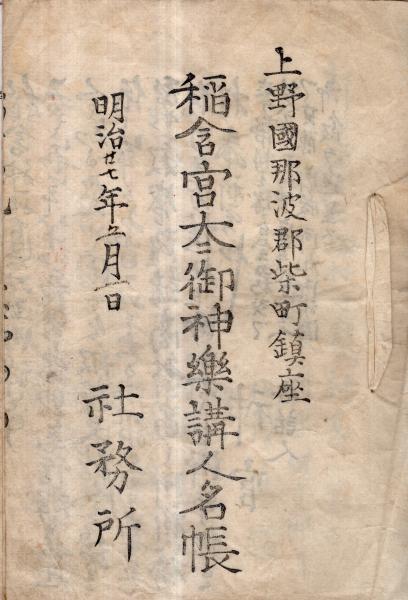 上野國那波郡柴町鎮座
稲含宮太々御神樂講人名帳
明治廿七年五月一日
社務所